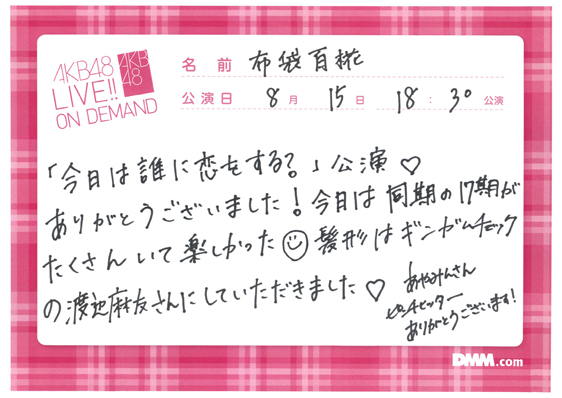 AKB48
LIVE!!
ON DEMAND
AKB
48
名前 布袋百椛
公演日 8月 15日 18:30 公演
「今日は誰に恋をする?」公演♡
ありがとうございました!今日は同期の17期が
たくさんいて楽しかった☺髪形はギンガムチェック
の渡辺麻友さんにしていただきました♡
あやみんさん
ピンチヒッター
ありがとうございます!
DMM.com